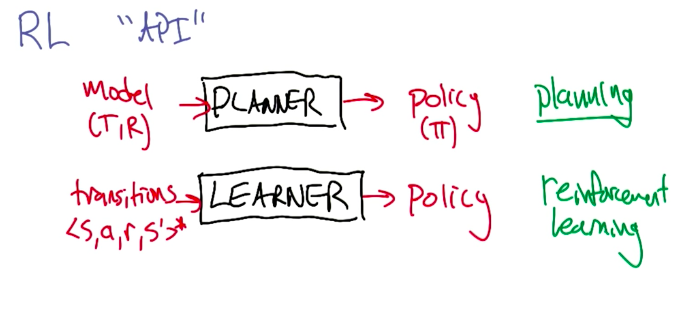 RL "API"
model → PLANNER → policy planning
(T,R) (π)
transitions → LEARNER → Policy reinforcement
<s,a,r,s'>* learning